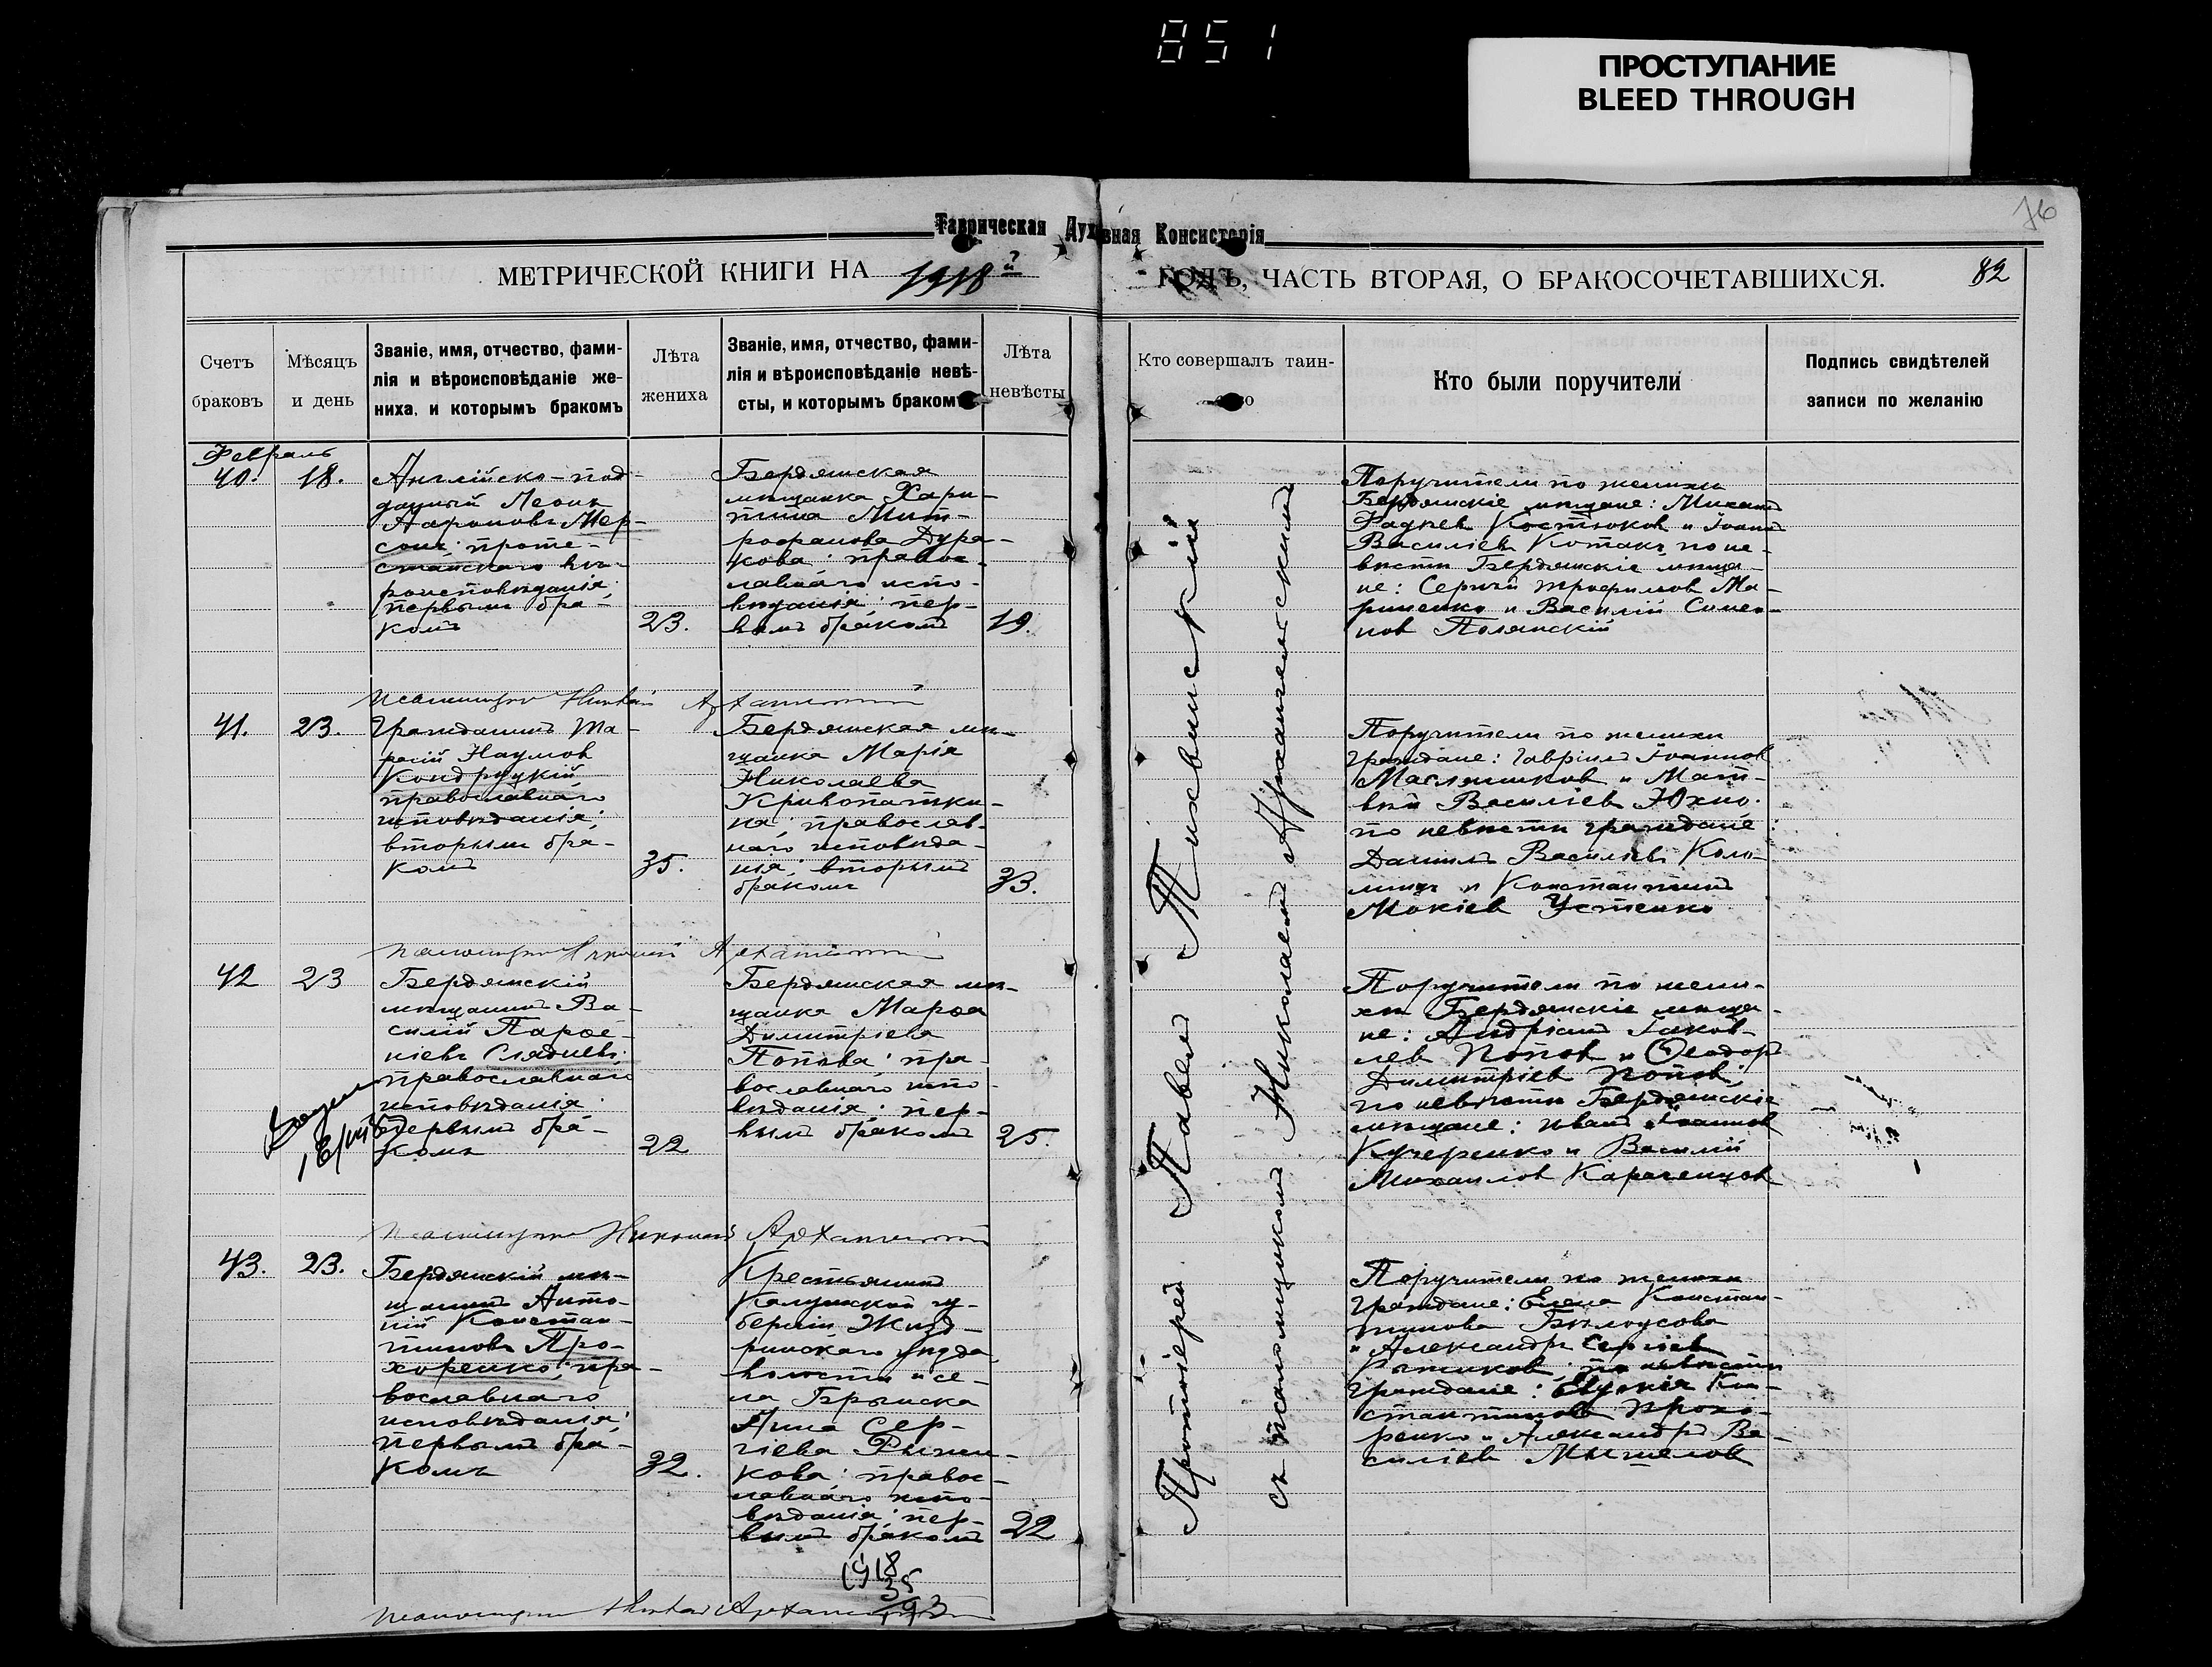 851
ПРОСТУПАНИЕ
BLEED THROUGH
76
Таврическая Духовная Консисторія
МЕТРИЧЕСКОЙ КНИГИ НА 1918й ГОДЪ, ЧАСТЬ ВТОРАЯ, О БРАКОСОЧЕТАВШИХСЯ. 82
Счетъ
браковъ
Мѣсяцъ
и день
Званіе, имя, отчество, фами-
лія и вѣроисповѣданіе же-
ниха, и которымъ бракомъ
Лѣта
жениха
Званіе, имя, отчество, фами-
лія и вѣроисповѣданіе невѣ-
сты, и которымъ бракомъ
Лѣта
невѣсты
Кто совершалъ таин-
во
Кто были поручители
Подпись свидѣтелей
записи по желанію
Февраль
40.
18.
Англійско-под-
данный Леонъ
Аароновъ Мер-
сонъ; проте-
станскаго вѣ-
роисповѣданія;
первымъ бра-
комъ
23.
Бердянская
мѣщанка Хари-
тина Мит-
рофанова Дура-
кова; правос-
лавнаго испо-
вѣданія; пер-
вымъ бракомъ
19.
Поручители по женихѣ
Бердянскіе мѣщане: Михаилъ
Фадѣев Костюков и Іоаннъ
Василіевъ Котакъ, по не-
вѣстѣ Бердянскіе мѣща-
не: Сергѣй Трофимов Ма-
риненко и Василій Симео-
нов Полянскій
Псаломщикъ Николай Архангельскій
41.
23.
Гражданинъ Та-
расій Наумов
Кондруцкій,
православнаго
исповѣданія;
вторымъ бра-
комъ
35.
Бердянская мѣ-
щанка Марія
Николаева
Кривопатки-
на; православ-
наго исповѣда-
нія; вторымъ
бракомъ
33.
Поручители по женихѣ
граждане: Гавріилъ Іоаннов
Маслянников и Мат-
вѣй Василіев Юхно.
по невѣстѣ граждане:
Даніилъ Василіевъ Коло-
міецъ и Константинъ
Мокіев Устенко
Псаломщикъ Николай Архангельскій
42
23
Бердянскій
мѣщанинъ Ва-
силій Парѳе-
ніевъ Сляднев;
православнаго
исповѣданія;
первымъ бра-
комъ
22
Бердянская мѣ-
щанка Марѳа
Димитріева
Попова; пра-
вославнаго испо-
вѣданія; пер-
вымъ бракомъ
25.
Поручители по жени-
хѣ Бердянскіе мѣща-
не: Андріанъ Іаков-
лев Попов и Ѳеодоръ
Димитріев Попов;
по невѣстѣ Бердянскіе
мѣщане: Иванъ Іоаннов
Кучеренко и Василій
Михаилов Караченцов
Псаломщикъ Николай Архангельскій
43.
23.
Бердянскій мѣ-
щанинъ Анто-
ній Констан-
тиновъ Про-
хоренко; пра-
вославнаго
исповѣданія;
первымъ бра-
комъ
32.
Крестьянинъ
Калужской гу-
берніи Жизд-
ринскаго уѣзда
волости и се-
ла Брынска
Анна Сер-
гіева Рыжи-
кова; правос-
лавнаго испо-
вѣданія; пер-
вымъ бракомъ
22
Поручители по женихѣ
граждане: Елена Констан-
тинова Бѣлоусова
и Александръ Сергіев
по невѣстѣ
граждане: Кон-
стантинов Прохо-
ренко и Александръ Ва-
силіев Мышелов
1918
35
Псаломщикъ Николай Архангельскій
Протоіерей Павелъ Тихвинскій
съ псаломщикомъ Николаемъ Архангельскимъ